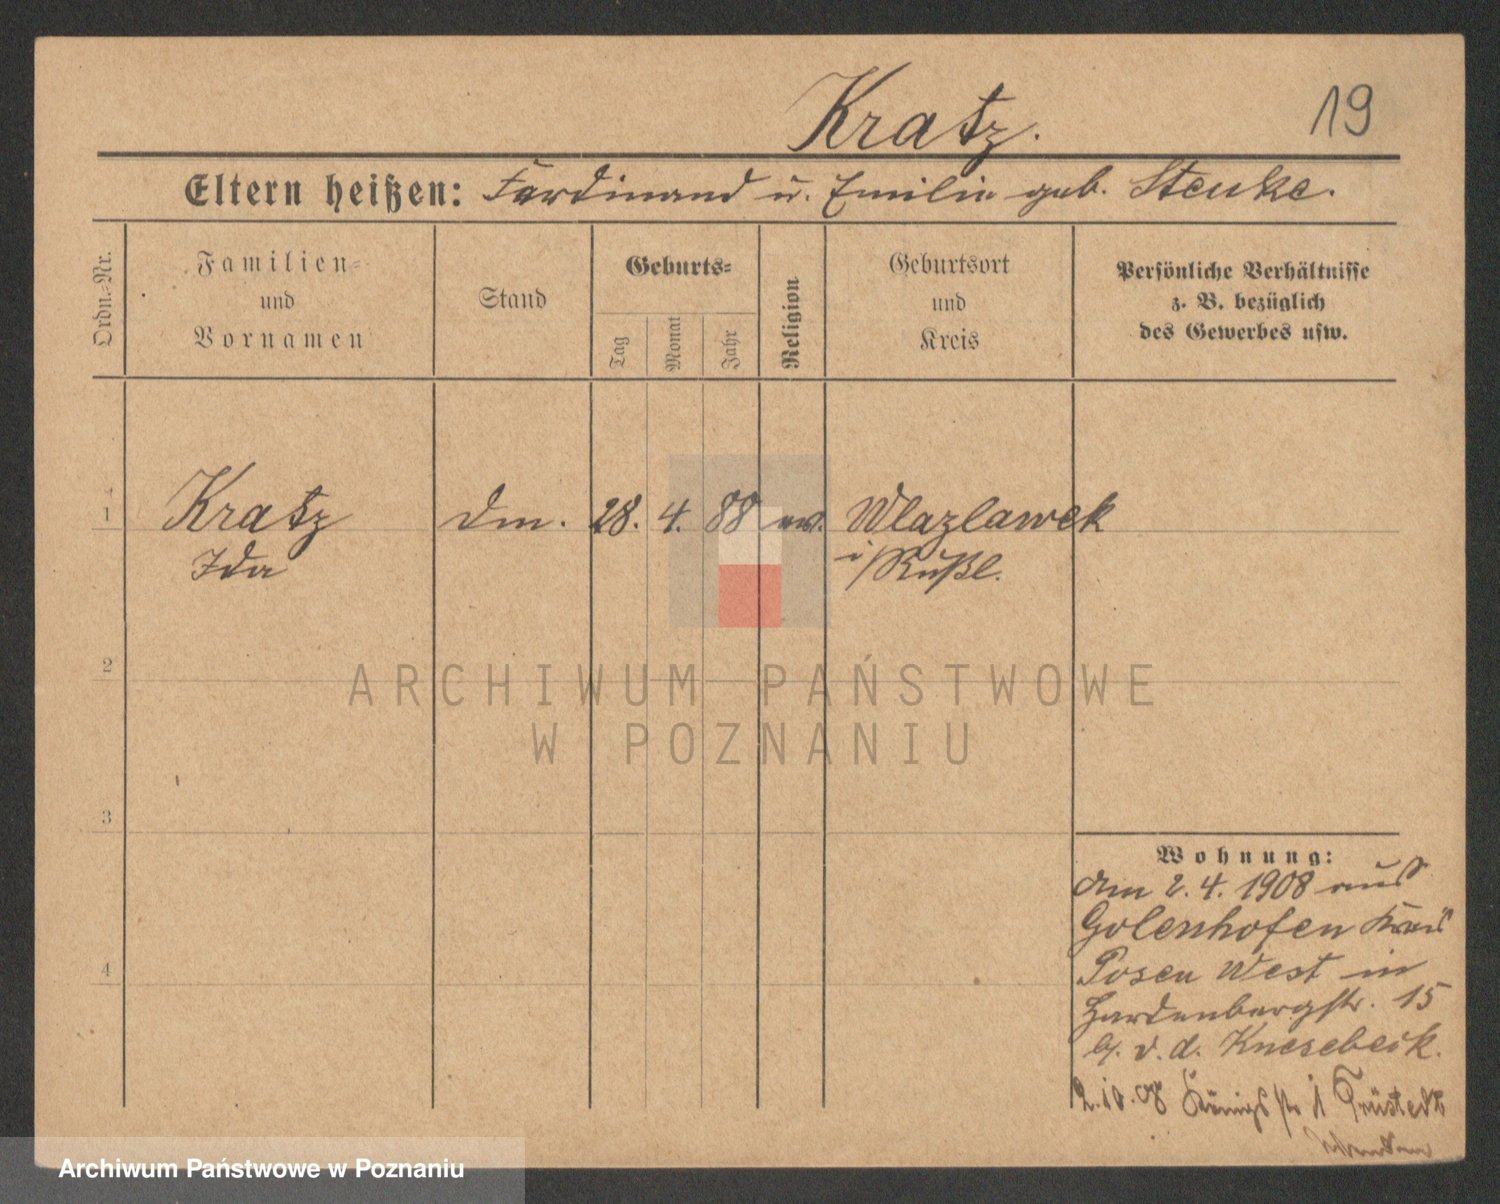 Kratz.
19
Eltern heißen: Ferdinand u. Emilie geb. Steuke.
Ordn.=Nr.
Familien=
und
Vornamen
Stand
Geburts=
Tag
Monat
Jahr
Religion
Geburtsort
und
Kreis
Persönliche Verhältnisse
z. B. bezüglich
des Gewerbes usw.
1
Kratz
Ida
dm.
28.
4.
88
ev.
Wlazlawek
i/Rußl.
2
ARCHIWUM PAŃSTWOWE
W POZNANIU
3
4
Wohnung:
am 2.4.1908 aus
Golenhofen Kreis
Posen West in
Hardenbergstr. 15
b. v. d. Knesebeck.
2.10.08 Königsstr 1 Trüstedt
Archiwum Państwowe w Poznaniu